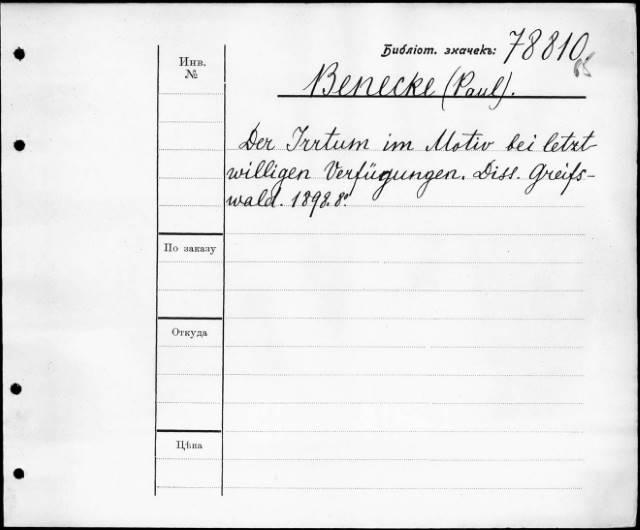 Библіот. значекъ: 78810
65
Инв.
№
Benecke (Paul).
Der Irrtum im Motiv bei letzt
willigen Verfügungen. Diss. Greifs-
wald. 1898. 8º.
По заказу
Откуда
Цѣна